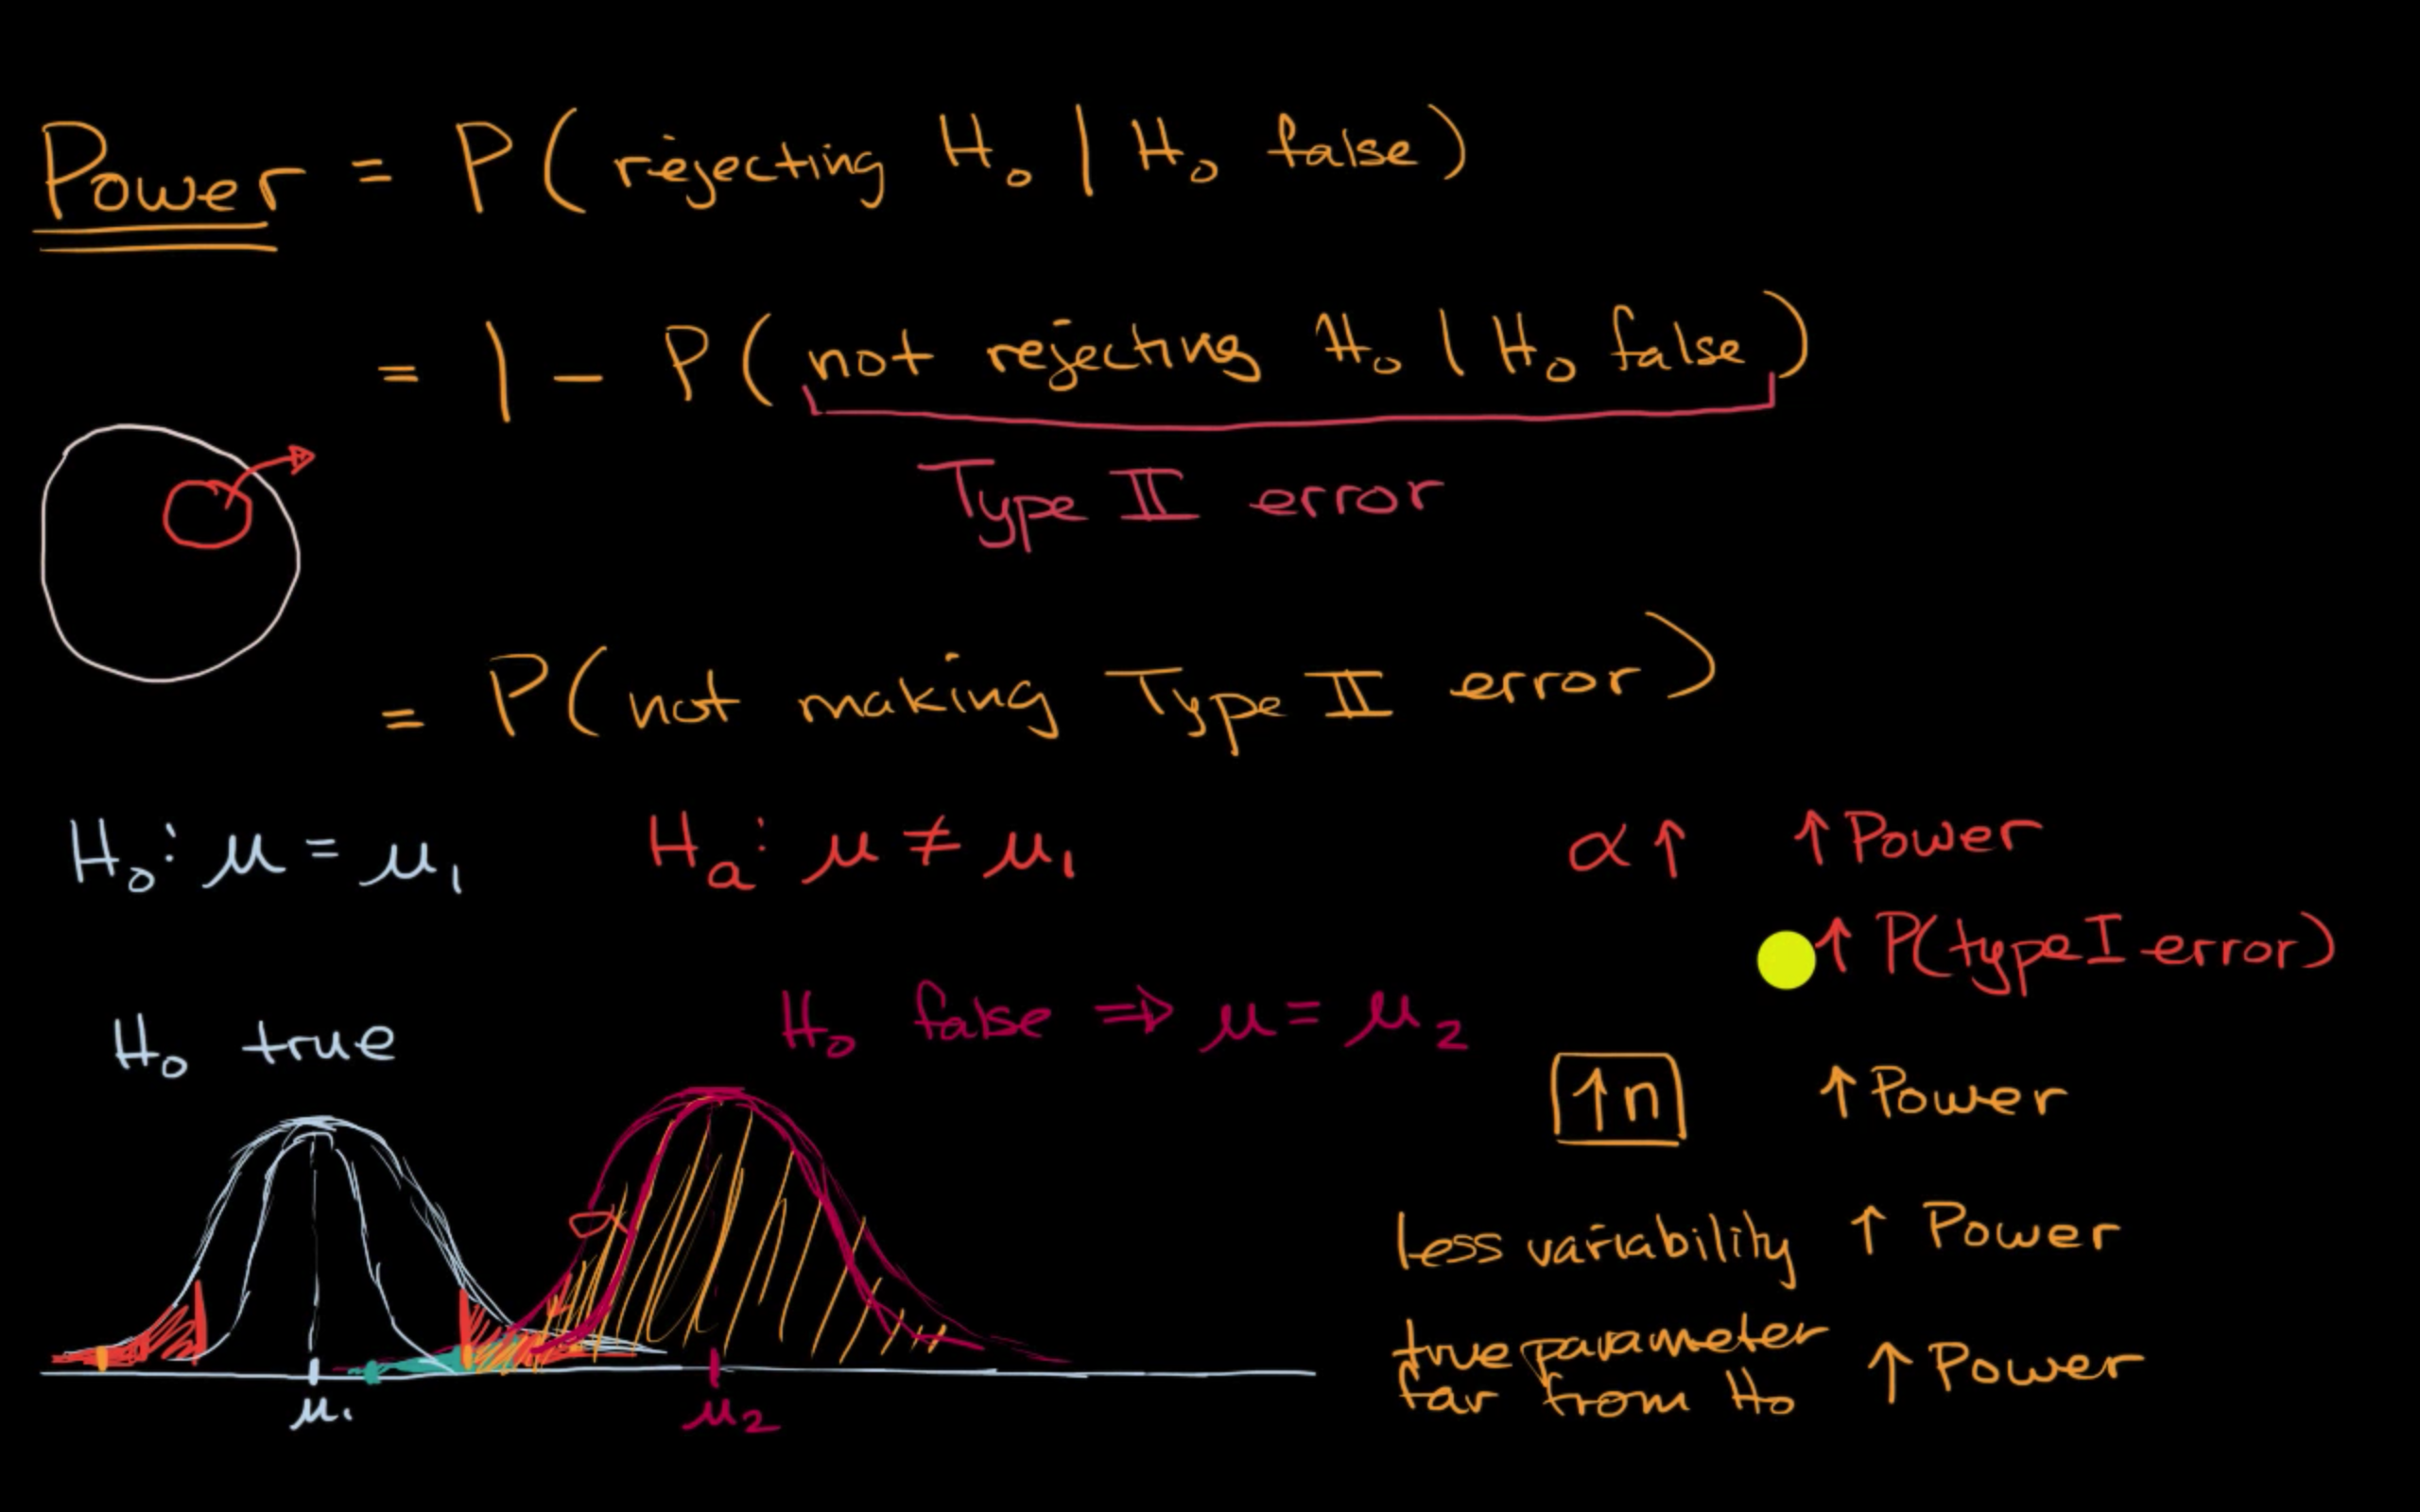 Power = P(rejecting H₀ | H₀ false)
= 1 - P(not rejecting H₀ | H₀ false)
Type II error
= P(not making Type II error)
H₀: μ = μ₁
Hₐ: μ ≠ μ₁
α↑ ↑Power
↑P(type I error)
H₀ true
H₀ false ⇒ μ = μ₂
↑n ↑Power
less variability ↑ Power
true parameter
far from H₀ ↑Power
α
μ₁
μ₂